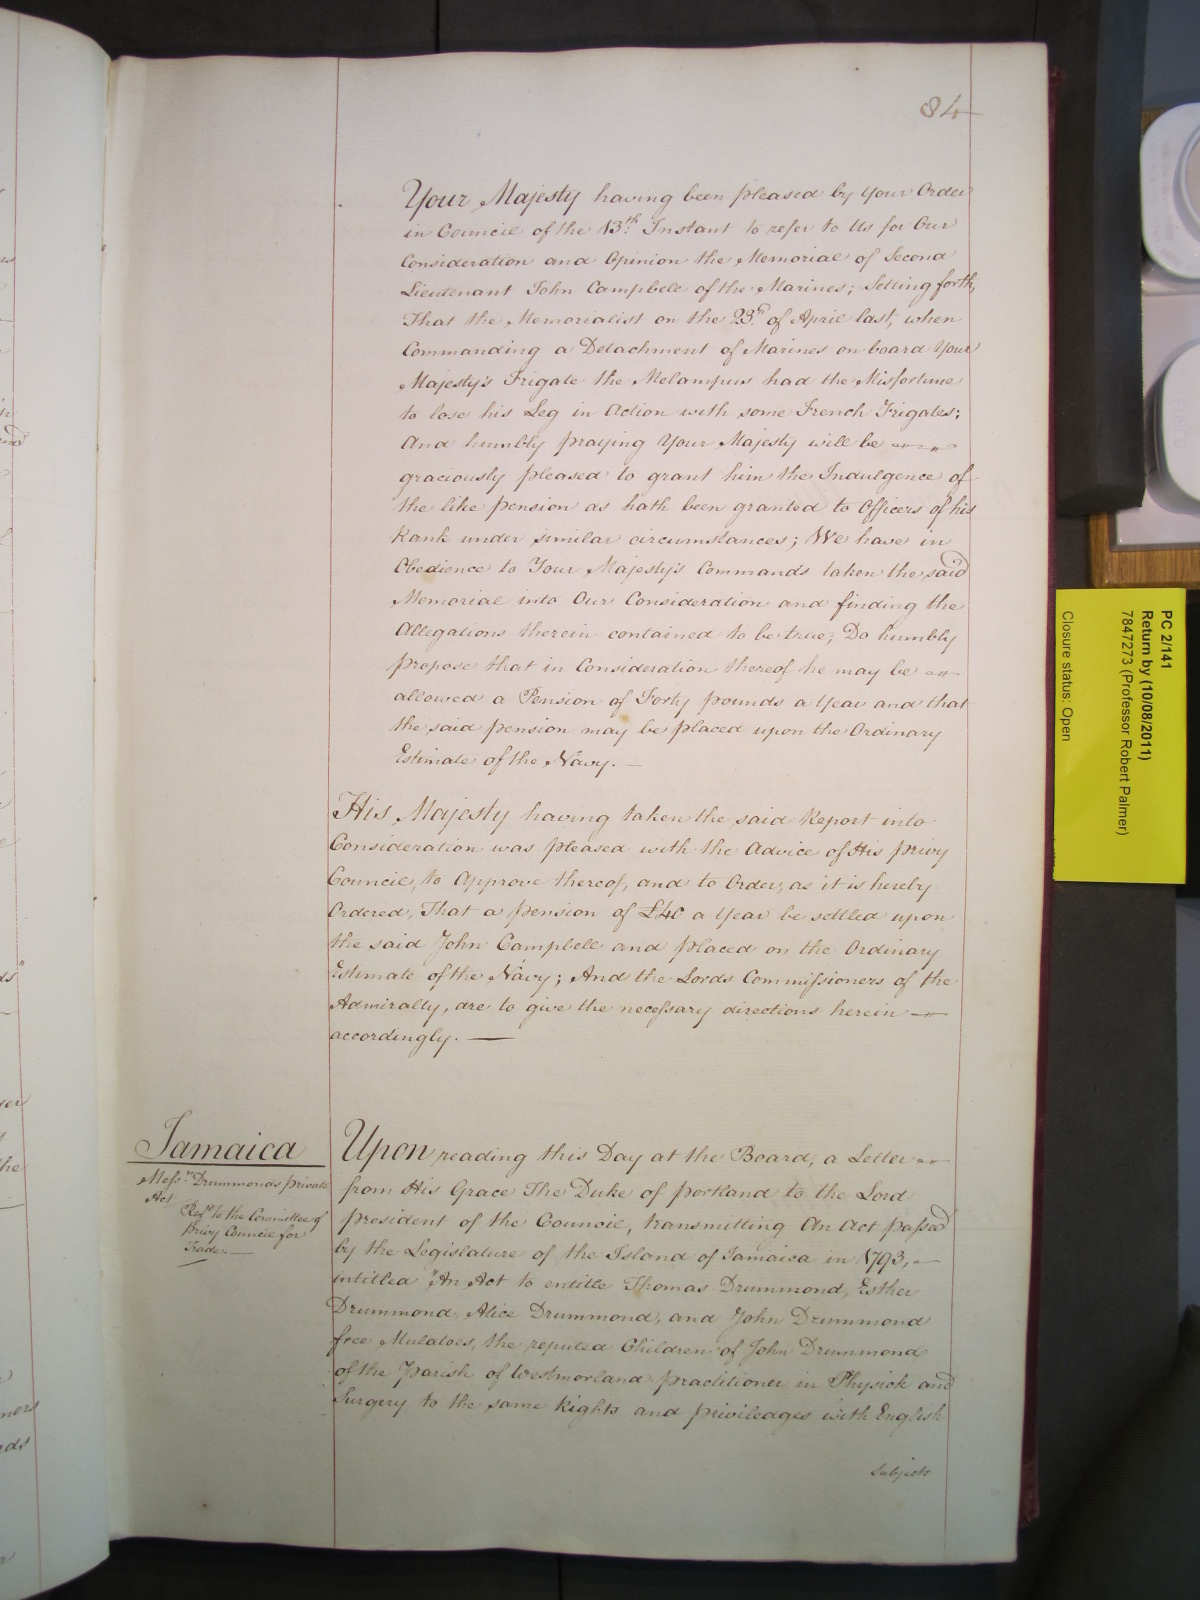 84
Your Majesty having been pleased by Your Order
in Council of the 13.th Instant to refer to Us for Our
Consideration and Opinion the Memorial of Second
Lieutenant John Campbell of the Marines; Setting forth,
That the Memorialist on the 23.d of April last, when
Commanding a Detachment of Marines on board Your
Majesty's Frigate the Melampus had the Misfortune
to lose his Leg in Action with some French Frigates:
And humbly praying Your Majesty will be
graciously pleased to grant him the Indulgence of
the like pension as hath been granted to Officers of his
Rank under similar circumstances; We have in
Obedience to Your Majesty's Commands taken the said
Memorial into Our Consideration and finding the
Allegations therein contained to be true; Do humbly
propose that in Consideration thereof he may be
allowed a Pension of Forty pounds a Year and that
the said pension may be placed upon the Ordinary
Estimate of the Navy. —
His Majesty having taken the said Report into
Consideration was pleased with the Advice of His privy
Council, to Approve thereof, and to Order, as it is hereby
Ordered, That a pension of £40 a Year be settled upon
the said John Campbell and placed on the Ordinary
Estimate of the Navy; And the Lords Commissioners of the
Admiralty, are to give the necessary directions herein
accordingly. —
Jamaica
Mess.rs Drummonds private
Act
Ref.d to the Committee of
Privy Council for
Trade. —
Upon reading this Day at the Board, a Letter
from His Grace The Duke of portland to the Lord
president of the Council, transmitting An Act passed
by the Legislature of the Island of Jamaica in 1793, —
intitled "An Act to entitle Thomas Drummond, Esther
Drummond, Alice Drummond, and John Drummond
free Mulatoes, the reputed Children of John Drummond
of the Parish of Westmorland practitioner in Physick and
Surgery to the same Rights and privileges with English
Subjects
PC 2/141
Return by (10/08/2011)
7847273 (Professor Robert Palmer)
Closure status: Open